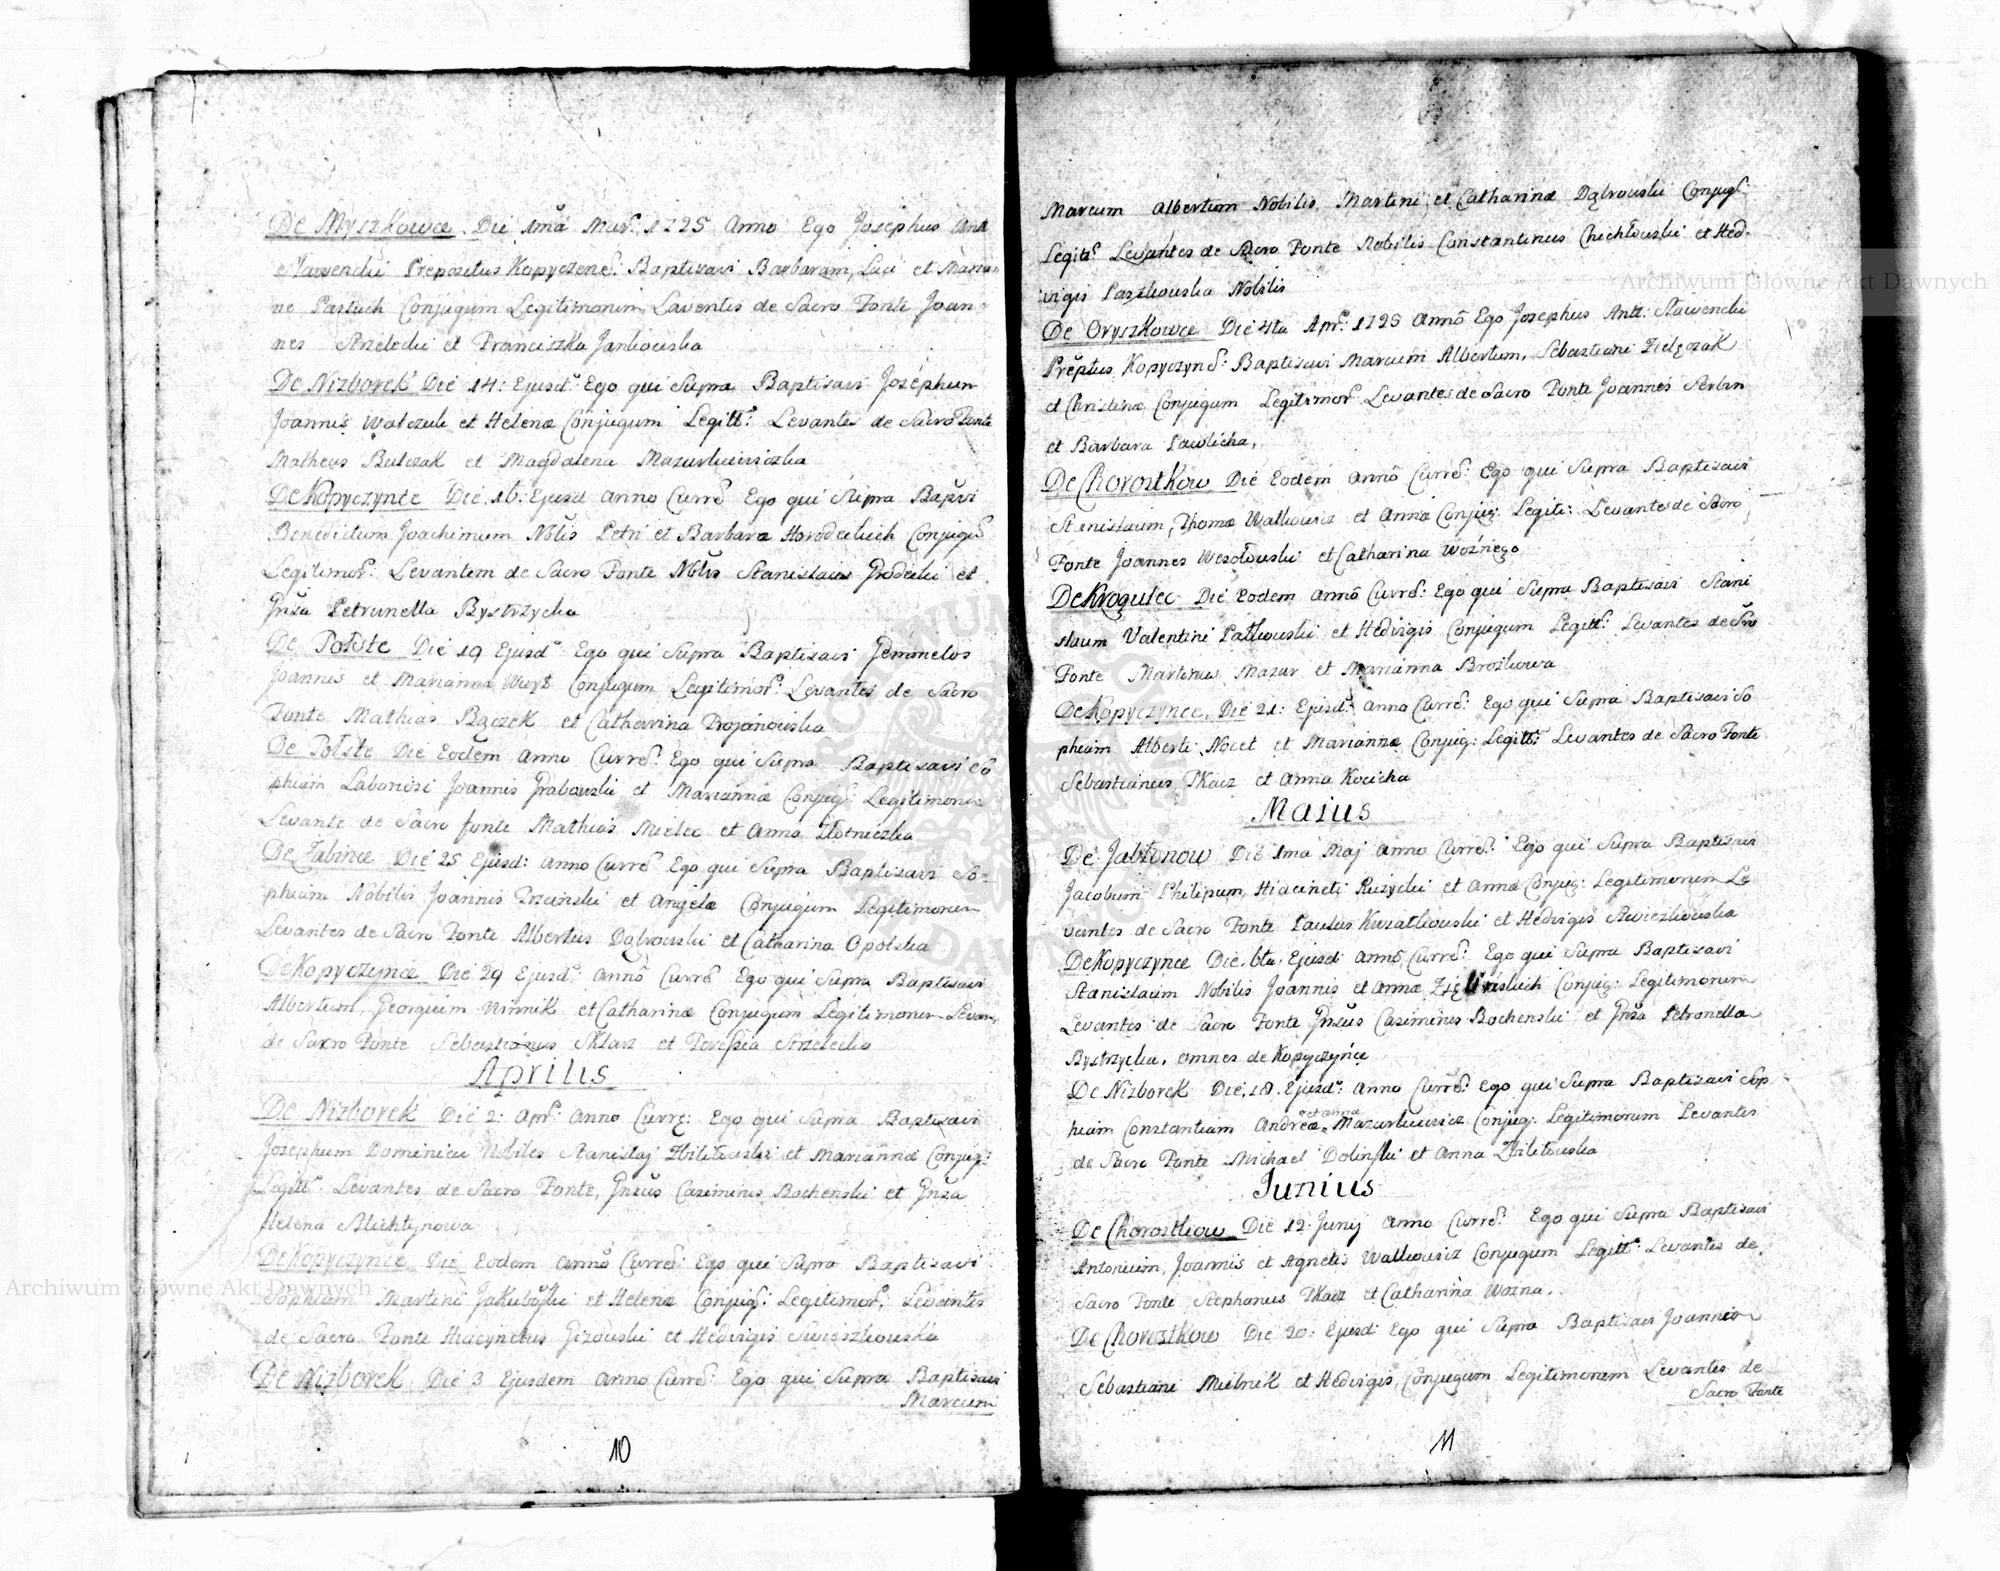 De Myszkowce Die 1mă Mar: 1725 Anno Ego Josephus And
Sławencki Prepozitus Kopyczenc: Baptisavi Barbaram, Luci et Marian
ne Pastuch Conjugum Legitimorum, Laventes de Sacro Fonte Joan-
nes Strzelecki et Franciszka Jankowska
De Nizborek Die 14: Ejusd: Ego qui Supra Baptisavi Josephum
Joannis Walczuk et Helenæ Conjugum Legitt: Levantes de Sacro Fonte
Matheus Bulczak et Magdalena Mazurkiewiczka
De Kopyczynce Die 16: Ejusd Anno Curre: Ego qui Supra Bapsvi
Benedictum Joachimum Nblis Petri et Barbaræ Horodeckich Conjugũ
Legitimor: Levantem de Sacro Fonte Nblis Stanislaus Grodecki et
Gnsa Petrunella Bystrzycka
De Tołste Die 19 Ejusd: Ego qui Supra Baptisavi Gemmelos
Joannis et Marianna Conjugum Legitimor: Levantes de Sacro
Fonte Mathias Bączek et Catherrina Trojanowska
De Tołste Die Eodem Anno Curre: Ego qui Supra Baptisavi So
phiam Laboriosi Joannis Grabowski et Mariannæ Conjug: Legitimorum
Levante de Sacro fonte Mathias Mielec et Anna Złotniczka
De Żabince Die 25 Ejusd: Anno Curre: Ego qui Supra Baptisavi So-
phiam Nobilis Joannis Trzcinski et Angelæ Conjugum Legitimorum
Levantes de Sacro Fonte Albertus Dąbrowski et Catharina Opolska
De Kopyczynce Die 29 Ejusd: Annô Curre: Ego qui Supra Baptisavi
Albertum, Georgium Nimnik et Catharinæ Conjugum Legitimorum Levan-
de Sacro Fonte Sebastianus Sklarz et Teresia Strzelecka
Aprilis
De Nizborek Die 2: Apr: Anno Curre: Ego qui Supra Baptisavi
Josephum Dominicu Nobiles Stanislaj Zbilitowski et Mariannæ Conjug:
Legitt: Levantes de Sacro Fonte, Gnsus Casimirus Bochenski et Gnsa
Helena
De Kopyczynce Die Eodem Annô Curre: Ego qui Supra Baptisavi
Sophiam Martini Jakubowski et Helenæ Conjug: Legitimor: Levantes
de Sacro Fonte Hiacynctus Gizowski et Hedvigis Swieszkowska
De Nizborek Die 3 Ejusdem Anno Curre: Ego qui Supra Baptisavi
Marcum
10
Marcum Albertum Nobilis Martini et Catharinæ Dąbrowski Conjug:
Legitt: Levantes de Sacro Fonte Nobilis Constantinus Chichłowski et Hed-
vigis Paszkowska Nobilis
De Oryszkowce Die 4ta Apr: 1725 Annô Ego Josephus Antt: Sławencki
Preptus Kopyczynd: Baptisavi Marcum Albertum, Sebastiani Zielęczak
et Christinæ Conjugum Legitimor: Levantes de Sacro Fonte Joannes Serbin
et Barbara Pawlicha,
De Chorostkow Die Eodem Annô Curre: Ego qui Supra Baptisavi
Stanislaum, Thomæ Walkowicz et Annæ Conjug: Legiti: Levantes de Sacro
Fonte Joannes Wesołowski et Catharina Woźnego
De Krogulec Die Eodem Annô Curre: Ego qui Supra Baptisavi Stani
slaum Valentini Patkowski et Hedvigis Conjugum Legitt: Levantes de Sro
Fonte Martinus Mazur et Marianna Brożkowa
De Kopyczynce, Die 21: Ejusd: Anno Curre: Ego qui Supra Baptisavi So
phiam Alberti Nocet et Mariannæ Conjug: Legitt: Levantes de Sacro Fonte
Sebastianus Tkacz et Anna Kocicha
Maius
De Jabłonow Die 1ma Maj Anno Curre: Ego qui Supra Baptisavi
Jacobum Philipum, Hiacincti Ruzycki et Annæ Conjug: Legitimorum Le
vantes de Sacro Fonte Paulus Kwiatkowski et Hedvigis Swieczkowska
De Kopyczynce Die 6ta Ejusd Annô Curre: Ego qui Supra Baptisavi
Stanislaum Nobilis Joannis et Annæ Conjug: Legitimorum
Levantes de Sacro Fonte Gnsus Casimirus Bochenski et Gnsa Petronella
Bystrzycka, omnes de Kopyczyńce
De Nizborek Die, 18. Ejusd: Anno Curre: Ego qui Supra Baptisavi Sop
hiam Constantiam Andreæ et Anna Mazurkiewicz Conjug: Legitimorum Levantes
de Sacro Fonte Michael Dolinski et Anna Zbilitowska
Junius
De Chorostkow Die 12 Junij Anno Curre: Ego qui Supra Baptisavi
Antonium, Joannis et Agnetis Walkowicz Conjugum Legitt: Levantes de
Sacro Fonte Stephanus Tkacz et Catharina Wozna.
De Chorostkow Die 20: Ejusd: Ego qui Supra Baptisavi Joannem
Sebastiani Mielnik et Hedvigis Conjugum Legitimorum Levantes de
Sacro Fonte
11
Archiwum Główne Akt Dawnych
Archiwum Główne Akt Dawnych